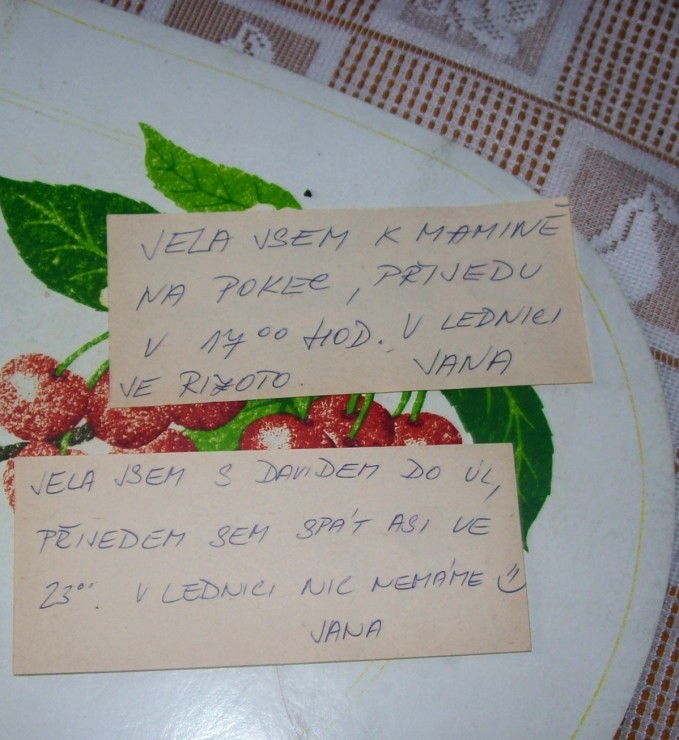 JELA JSEM K MAMINĚ
NA POKEC, PŘIJEDU
V 17⁰⁰ HOD. V LEDNICI
JE RIZOTO. JANA
JELA JSEM S DAVIDEM DO ÚL,
PŘIJEDEM SEM SPÁT ASI VE
23⁰⁰. V LEDNICI NIC NEMÁME
JANA